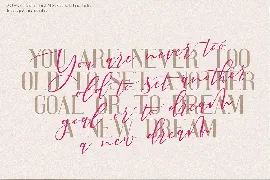 YOU ARE NEVER TOO
OLD TO SET ANOTHER
GOAL OR TO DREAM
A NEW DREAM
You are never too
old to set another
goal or to dream
a new dream